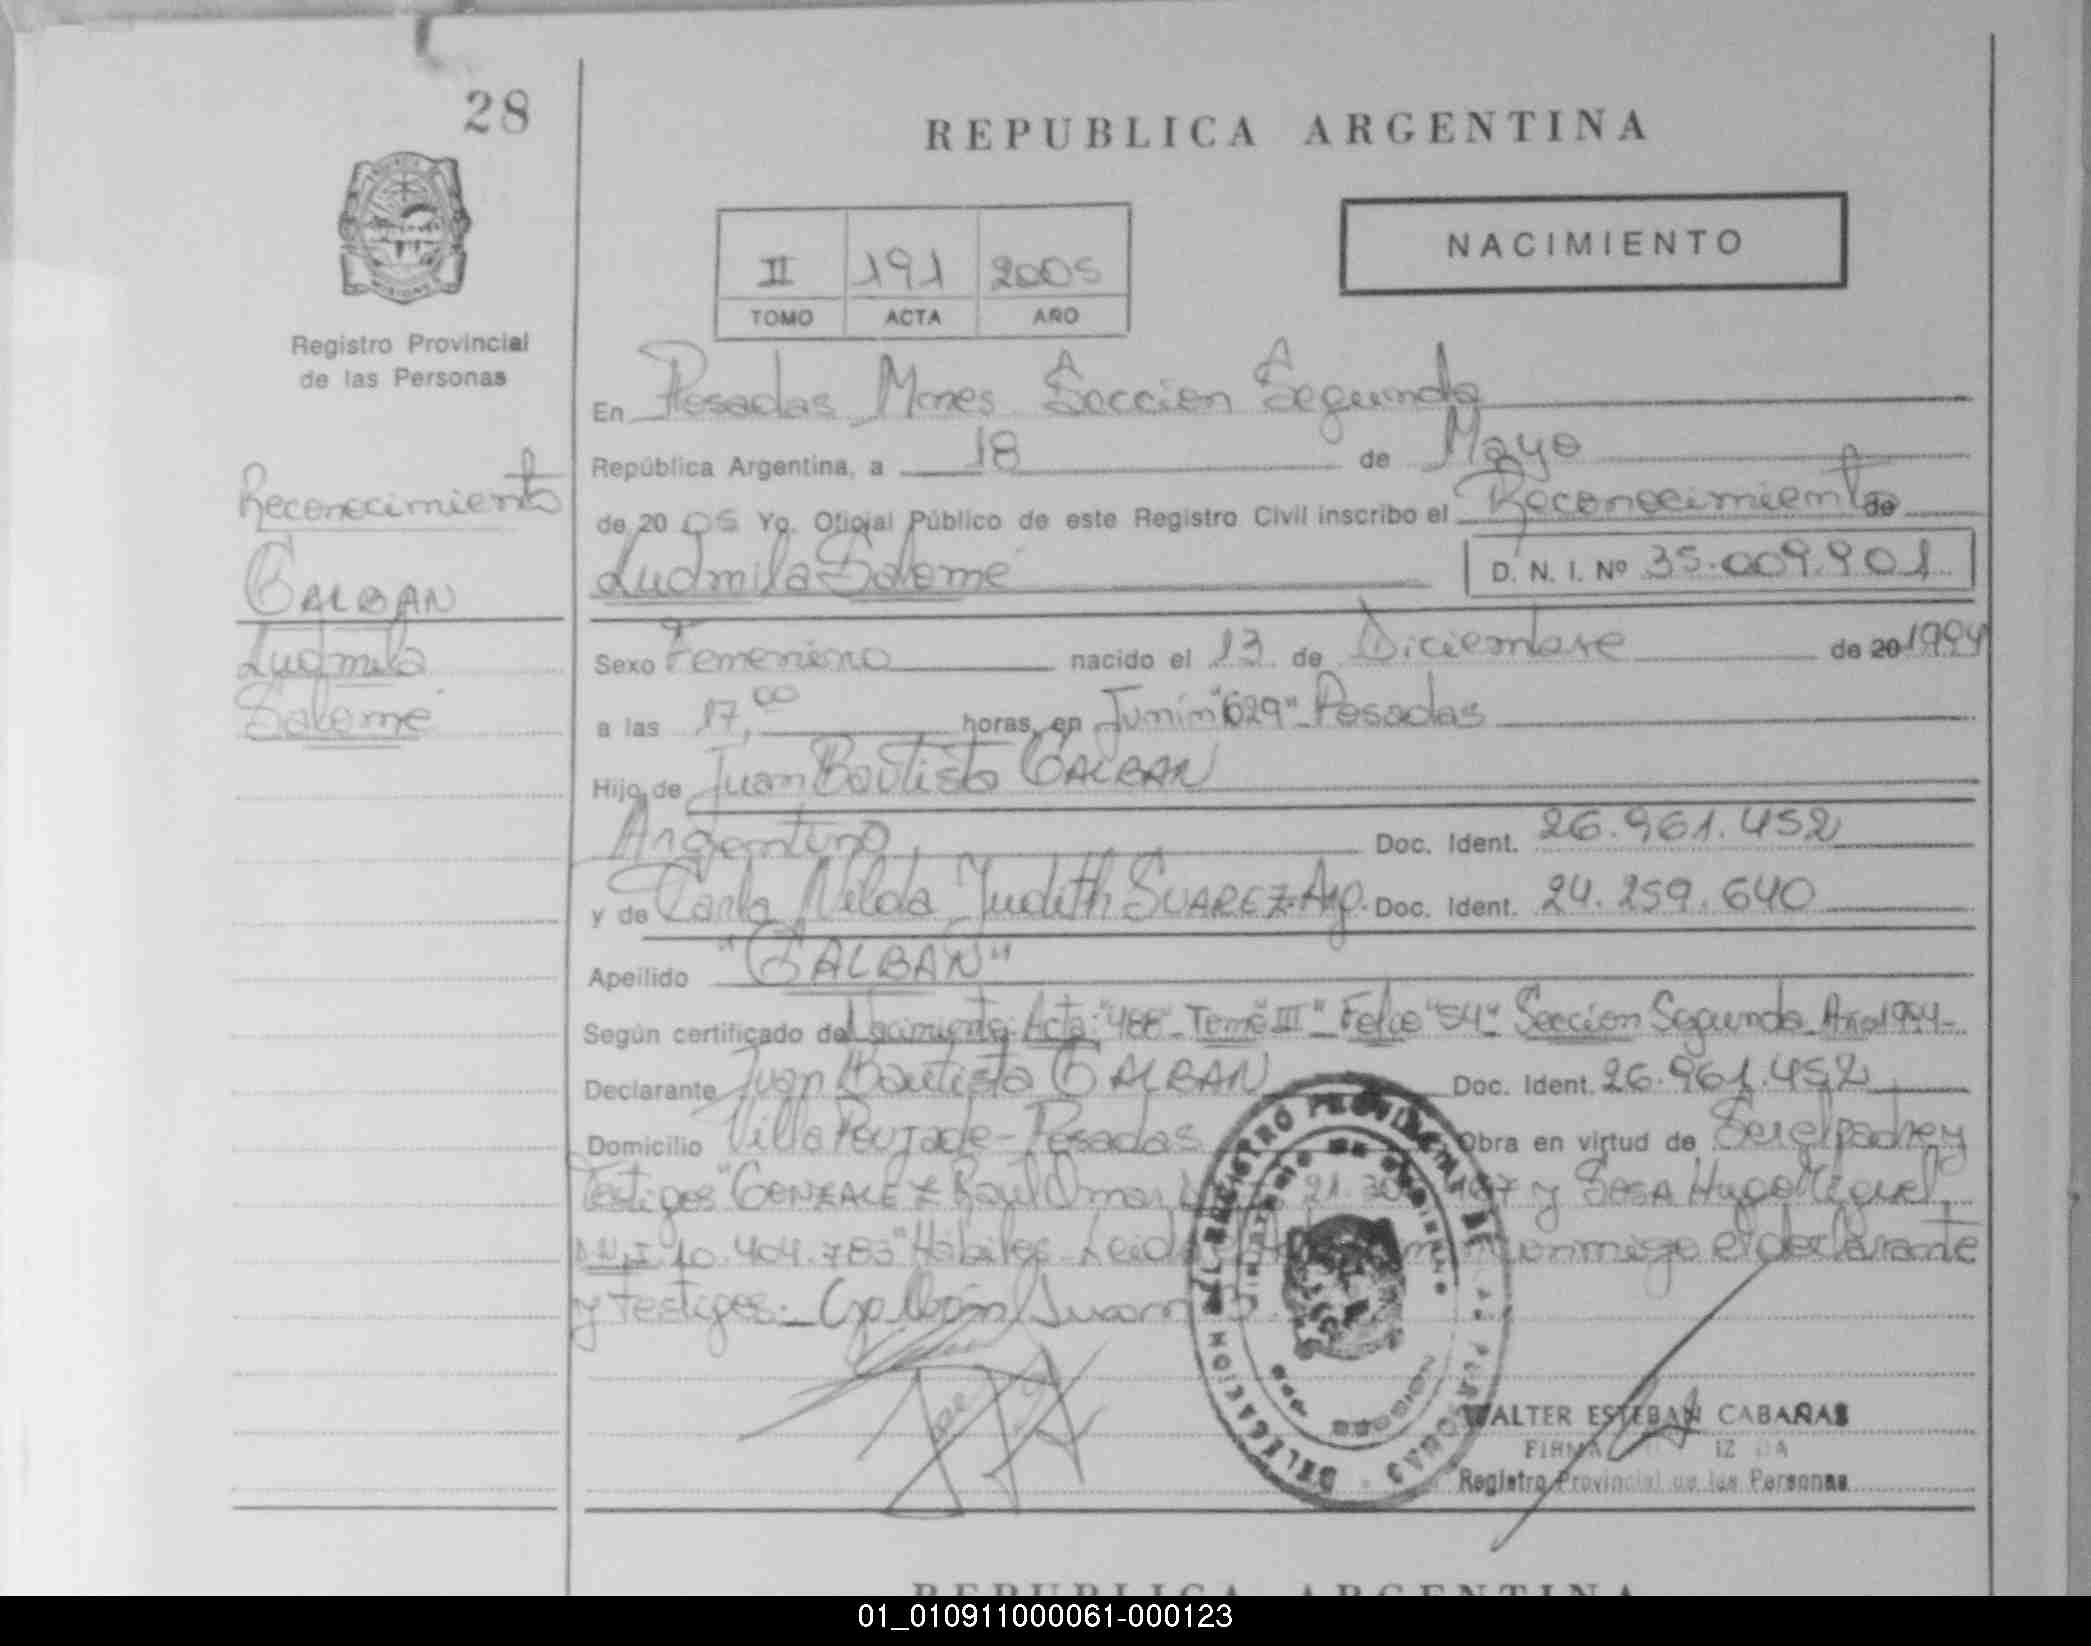 28
REPUBLICA ARGENTINA
NACIMIENTO
II 191 2005
TOMO ACTA AÑO
Registro Provincial
de las Personas
Reconocimiento
GALBAN
Ludmila
Salomé
En Posadas Mnes Sección Segunda
República Argentina, a 18 de Mayo
de 20 05 Yo. Oficial Público de este Registro Civil inscribo el Reconocimiento de
Ludmila Salomé D. N. I. Nº 35.009.901
Sexo Femenino nacido el 13 de Diciembre de 20 1994
a las 17,00 horas, en Junín "629" Posadas
Hijo de Juan Bautista GALBAN
Argentino Doc. Ident. 26.961.452
y de Carla Nilda Judith SUAREZ-Arg. Doc. Ident. 24.259.640
Apellido "GALBAN"
Según certificado de Nacimiento Acta "488" Tomo "III" Folio "54" Sección Segunda Año 1994
Declarante Juan Bautista GALBAN Doc. Ident. 26.961.452
Domicilio Villa Poujade - Posadas Obra en virtud de Ser el padre y
Testigos "GONZALEZ Raúl Omar y SOSA Hugo Miguel
D.N.I. 10.404.783" Hábiles Leida conmigo el declarante
y testigos.
DELEGACION DEL REGISTRO PROVINCIAL DE LAS PERSONAS
MINISTERIO DE GOBIERNO
MISIONES
WALTER ESTEBAN CABAÑAS
FIRMA
Registro Provincial de las Personas
REPUBLICA ARGENTINA
01_010911000061-000123